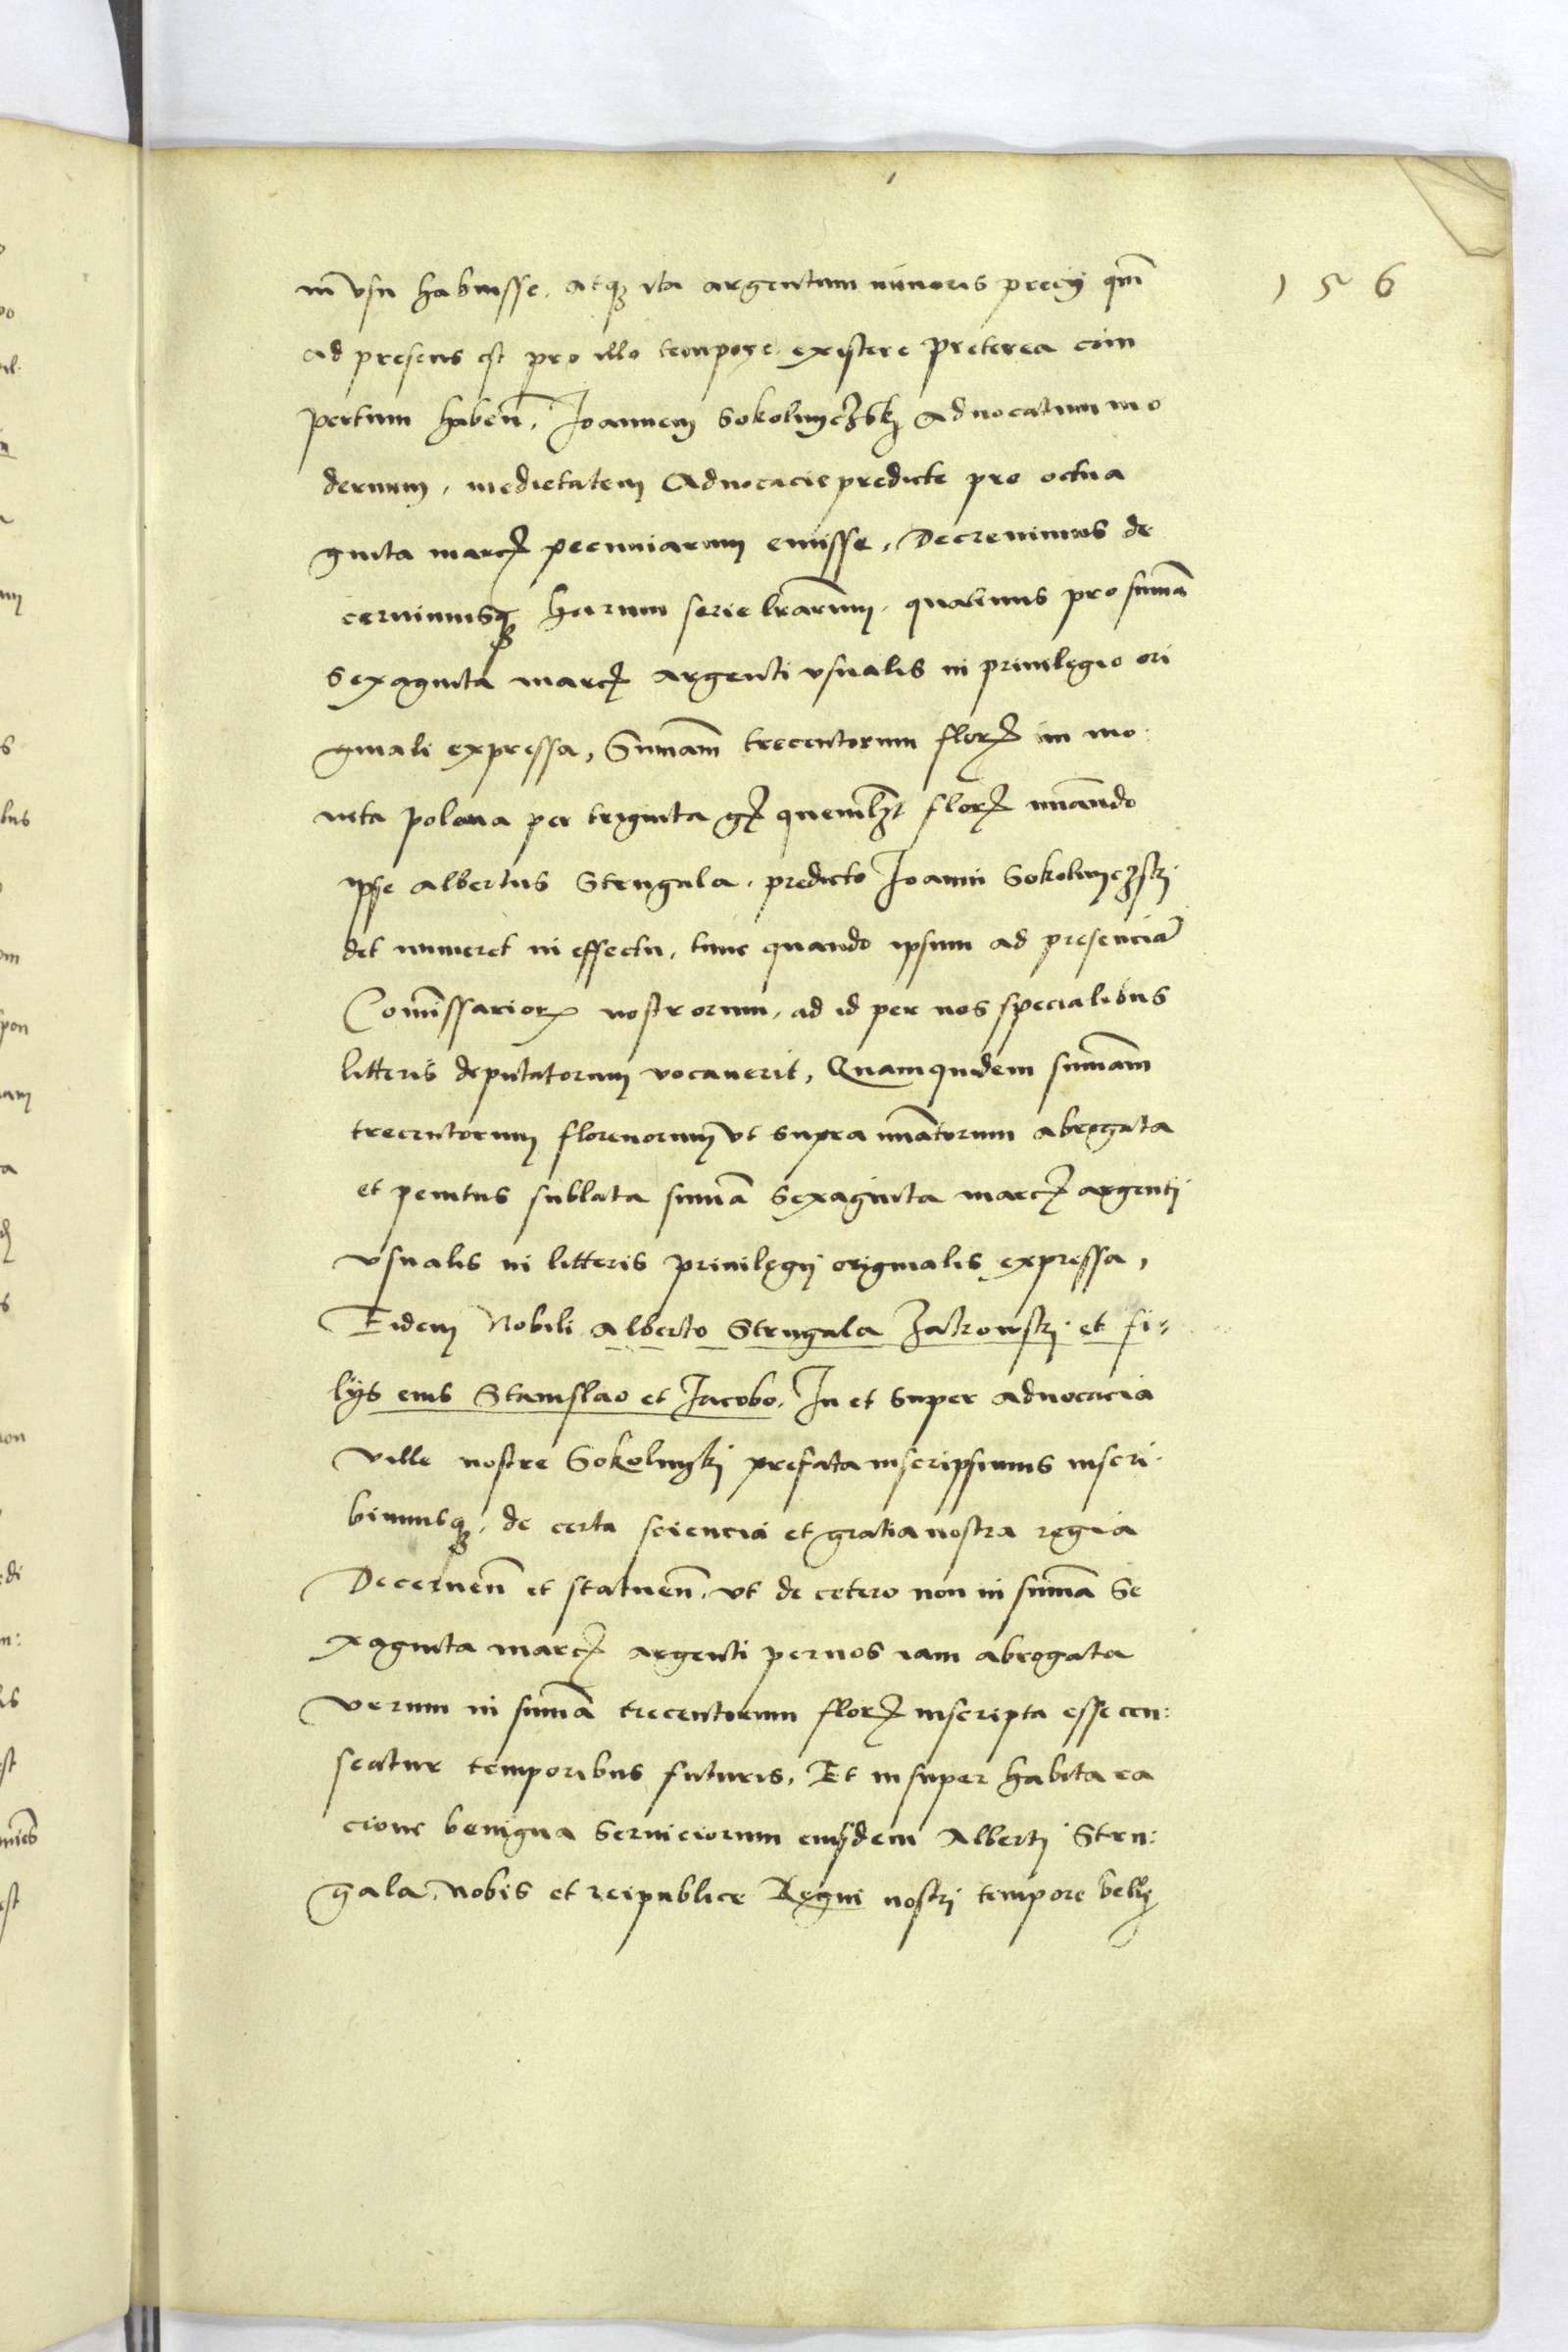 in vsu habuisse. atq3 ita argentum minoris precij qm̃
156
ad presens est pro illo tempore existere preterea com
pertum habeñ. Joannem Sokolniczskj Aduocatum mo
dernum, medietatem Aduocacie predicte pro octua
ginta marcꝝ pecuniarum emisse, Decreuimus de
cernimusq3 harum serie lr̃arum. quatinus pro sum̃a
sexaginta marcꝝ argenti vsualis in priuilegio ori
ginali expressa, Sum̃am trecentorum florꝝ in mo
neta polona per triginta gꝝ quemlꝫt florꝝ nũando
ipse Albertus Strugala. predicto Joanni Sokolniczskj
det numeret in effectu. tunc quando ipsum ad presenciã
Com̃issariorꝝ nostrorum. ad id per nos specialibus
litteris deputatorum vocauerit, Quamquidem sum̃am
trecentorum florenorum vt supra nũatorum abrogata
et penitus sublata sum̃a sexaginta marcꝝ argentj
vsualis in litteris priuilegij originalis expressa,
Eidem Nobili Alberto Strugala Zatrowskj et fi=
lijs eius Stanislao et Jacobo. In et super aduocacia
ville nostre Sokolnykj prefata inscripsimus inscri
bimusq3. de certa sciencia et gratia nostra regia
Decerneñ et statueñ. vt de cetero non in sum̃a se
xaginta marcꝝ argenti per nos iam abrogata
verum in sum̃a trecentorum florꝝ inscripta esse cen:
seatur temporibus futuris. Et insuper habita ra
cione benigna seruiciorum eiusdem Albertj Stru:
gala. nobis et reipublice Regni nostrj tempore bellj